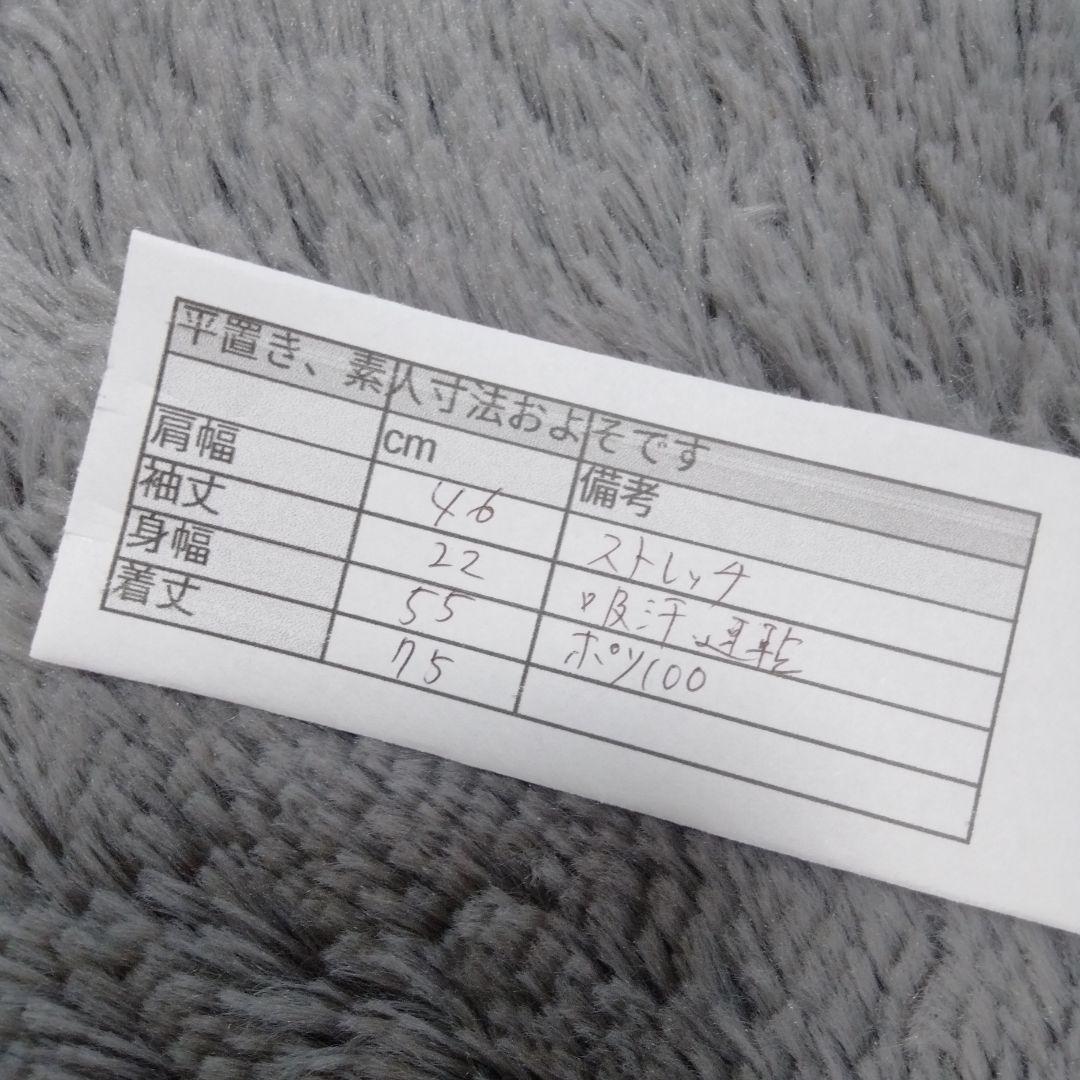 平置き、素人寸法およそです
cm 備考
肩幅 46 ストレッチ
袖丈 22 吸汗速乾
身幅 55 ポリ100
着丈 75